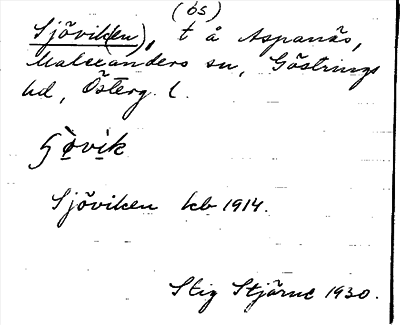 (bs)
Sjövik(en), t å Aspanäs,
Malexanders sn, Göstrings
hd, Österg. l.
Sjöviken kb 1914.
Stig Stjärne 1930.